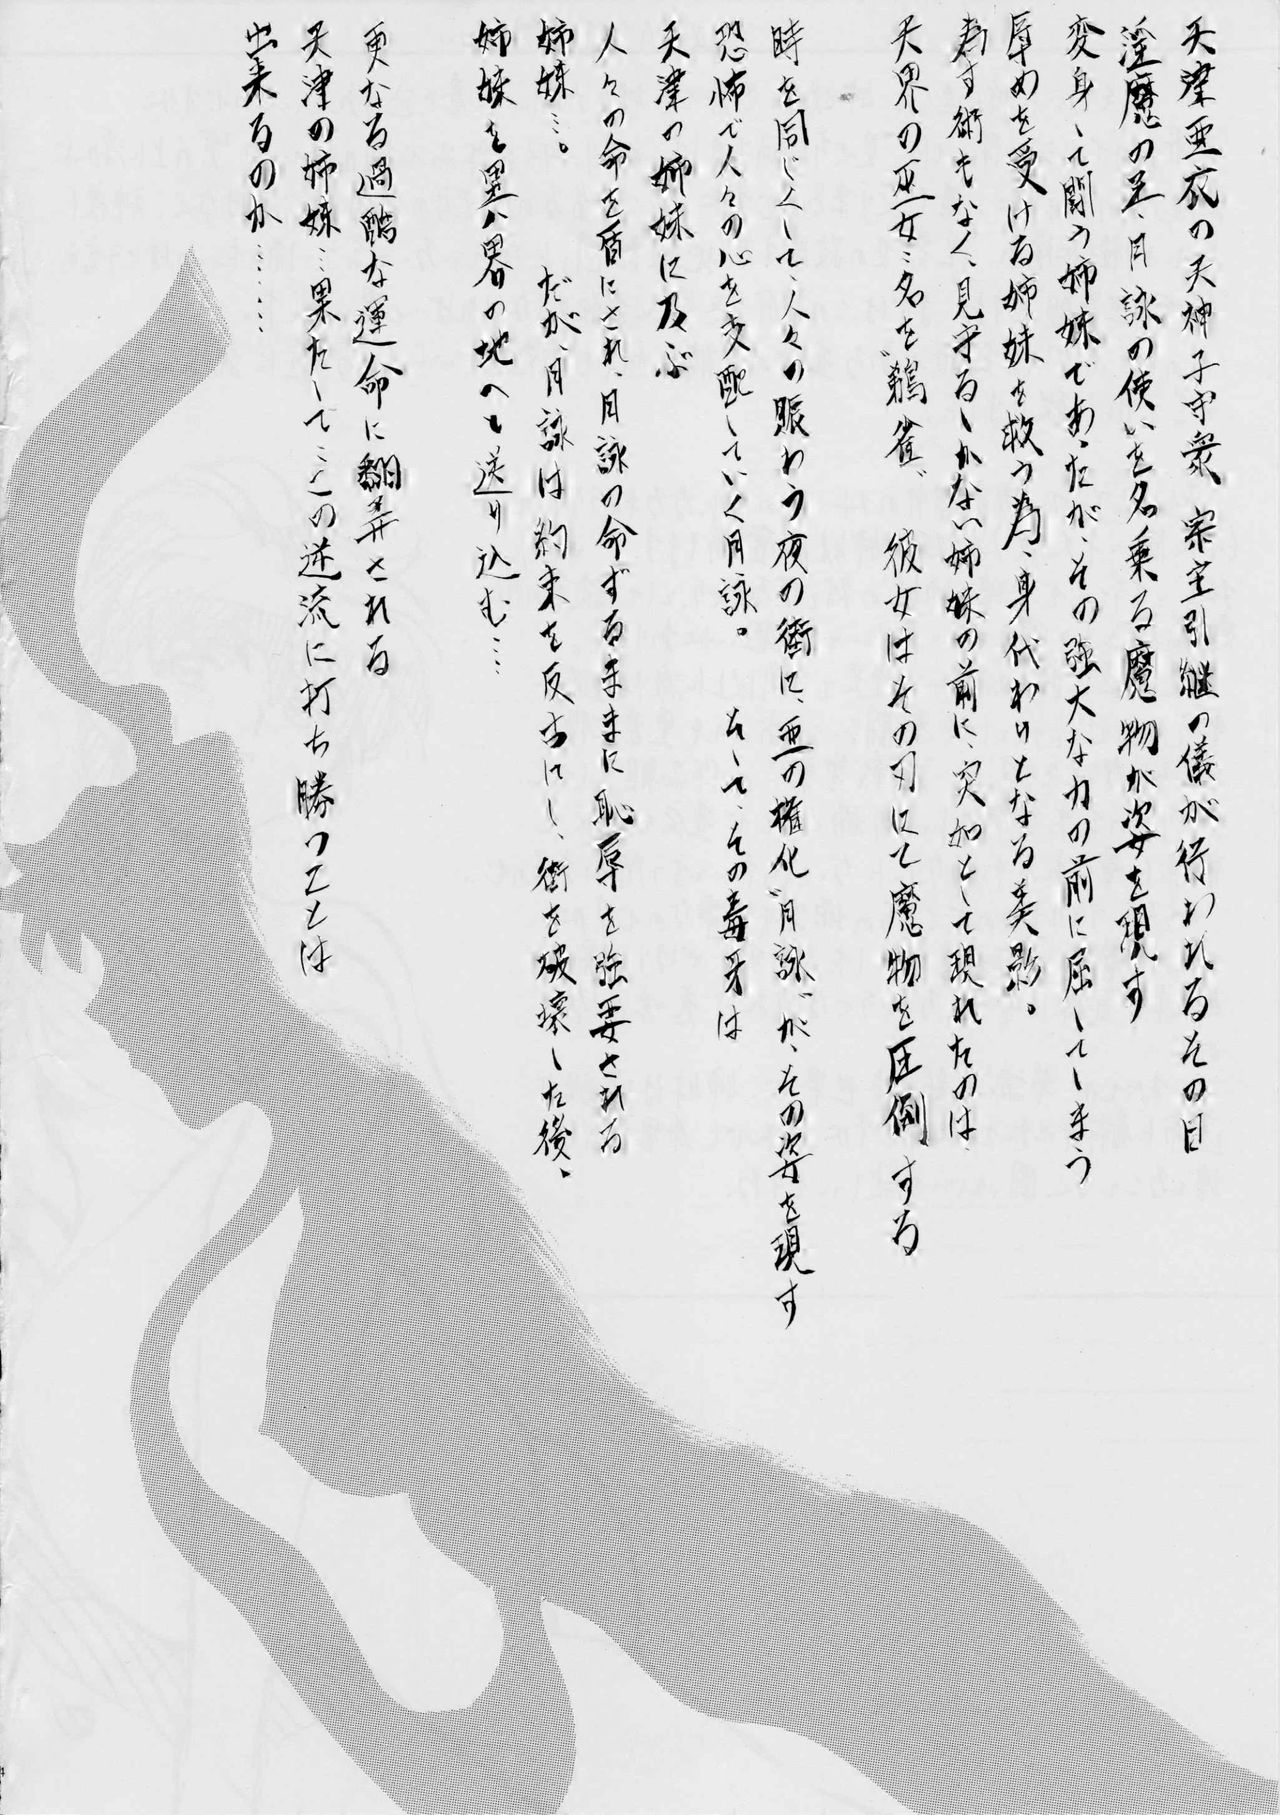 天津亜衣の天神子守衆 宗主引継の儀が行われるその日
淫魔の王、月詠の使いを名乗る魔物が姿を現す
変身して闘う姉妹であったが、その強大な力の前に屈してしまう
辱めを受ける姉妹を救う為、身代わりとなる美影。
為す術もなく、見守るしかない姉妹の前に、突如として現れたのは、
天界の巫女…名を〝鵺雀〟 彼女はその刃にて魔物を圧倒する
時を同じくして、人々の賑わう夜の街に、悪の権化〝月詠〟が、その姿を現す
恐怖で人々の心を支配していく月詠。 そして、その毒牙は
天津の姉妹に及ぶ
人々の命を盾にされ、月詠の命ずるままに恥辱を強要される
姉妹…。 だが、月詠は約束を反古にし、街を破壊した後、
姉妹を異界の地へと送り込む…
更なる過酷な運命に翻弄される
天津の姉妹…果たして…この逆流に打ち勝つことは
出来るのか………